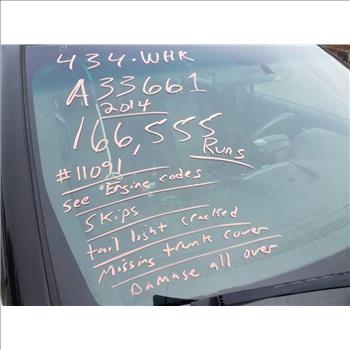 434-WHK
A33661
2014
166,555
Runs
#11091
See Engine codes
Skips
tail light cracked
Missing trunk cover
Damage all over